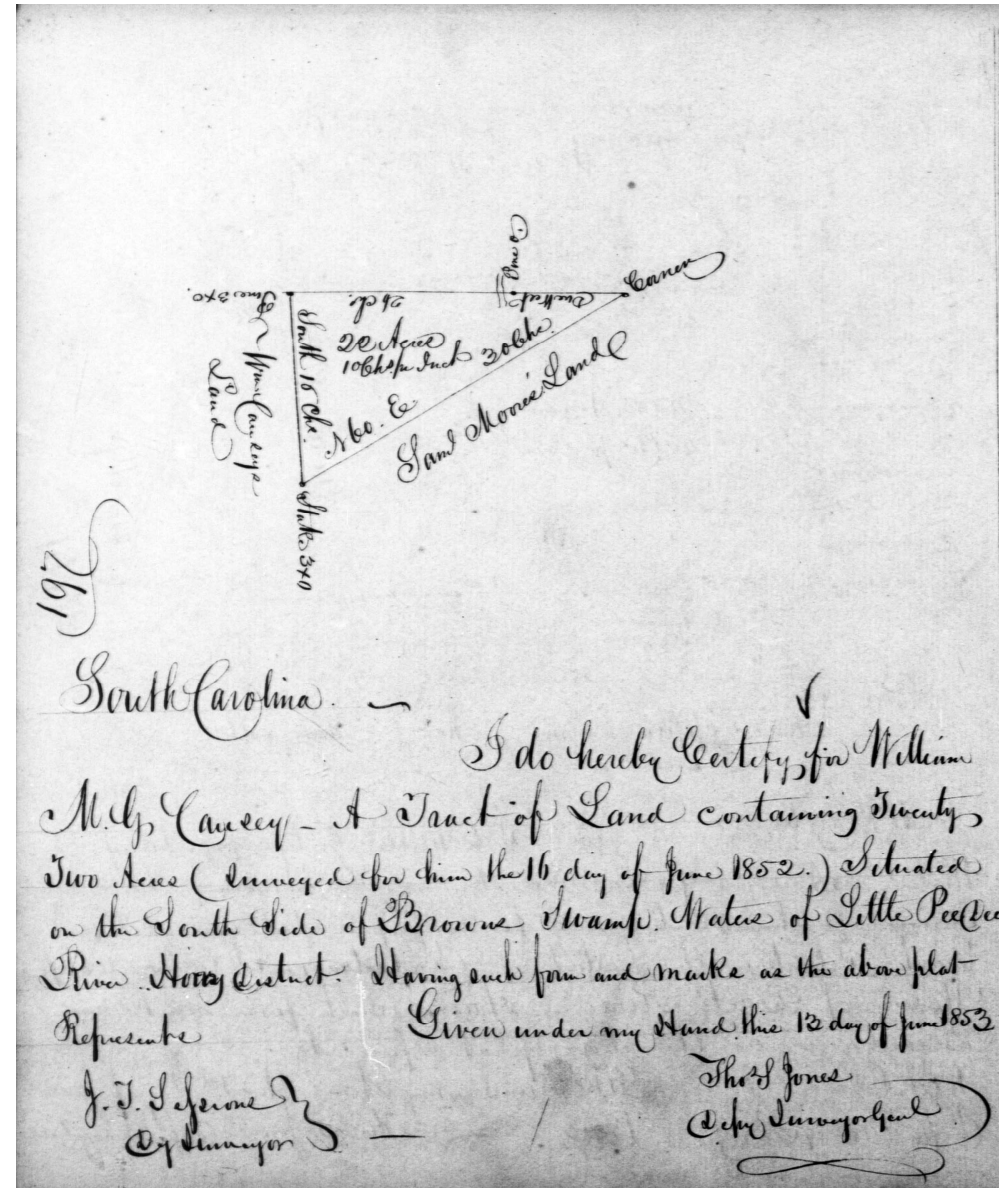 Pine 3x0.
26 Chs.
Pine 0
Due West
Corner
South 16 Chs.
22 Acres
10 Chs pr Inch
30 Chs.
N 60. E
Saml Moore's Land
Wm Causeys
Land
Stake 3x0
261
South Carolina.
I do hereby Certify, for William
M. G. Causey - A Tract of Land containing Twenty
Two Acres ( Surveyed for him the 16 day of June 1852. ) Situated
on the South Side of Browns Swamp. Waters of Little Pee Dee
River. Horry District. Having such form and marks as the above plat
Represents Given under my Hand this 13 day of June 1853
J. T. Sessions Thos. S Jones
Dy Surveyor Depy Surveyor Genl